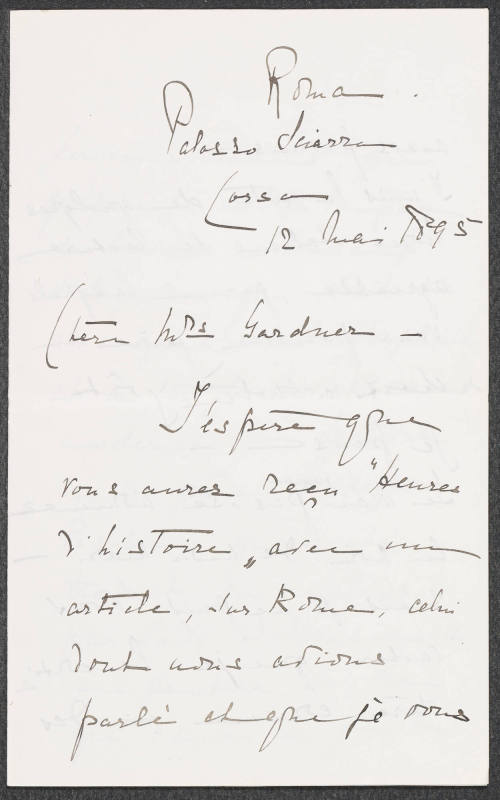 Roma.
Palazzo Sciarra
Corso
12 Mai 1895
Chère Mrs Gardner —
J'espère que
vous aurez reçu "Heures
d'histoire„ avec un
article, sur Rome, celui
dont nous avions
parlé et que je vous